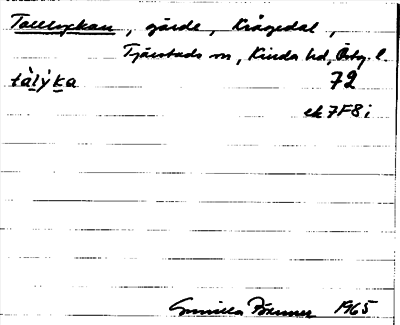 Tallyckan, gärde, Krågedal,
Tjärstads sn, Kinda hd, Östg. l.
tàlýka 72
ek 7F8i
Gunilla 1965